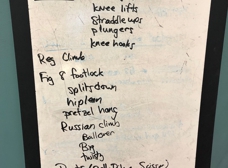 knee lifts
Straddle ups
plungers
knee hooks
Reg Climb
Fig 8 footlock
splits down
hip lean
pretzel hang
Russian climb
Ballover
Big
twisty